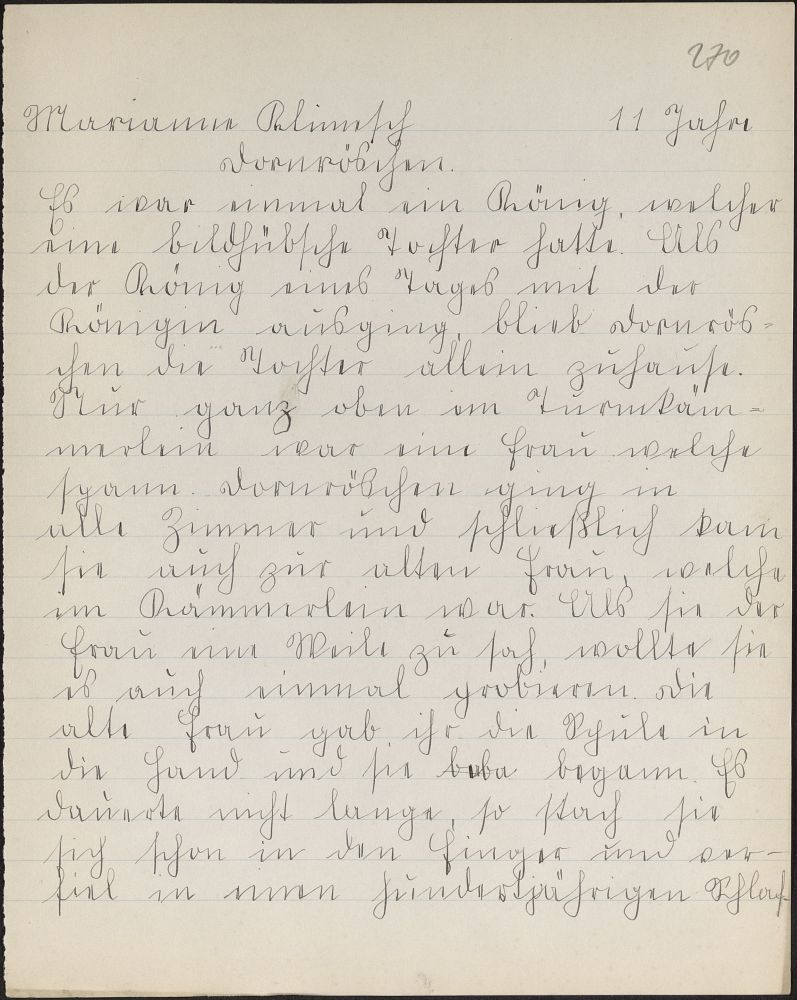 270
Marianne Klimesch 11 Jahre
Dornröschen.
Es war einmal ein König, welcher
eine bildhübsche Tochter hatte. Als
der König eines Tages mit der
Königin ausging, blieb Dornrös=
chen die Tochter allein zuhause.
Nur ganz oben im Turmkäm=
merlein war eine Frau welche
spann. Dornröschen ging in
alle Zimmer und schließlich kam
sie auch zur alten Frau, welche
im Kämmerlein war. Als sie der
Frau eine Weile zu sah, wollte sie
es auch einmal probieren. Die
alte Frau gab ihr die Spule in
die Hand und sie begann. Es
dauerte nicht lange, so stach sie
sich schon in den Finger und ver-
fiel in einen hundertjährigen Schlaf